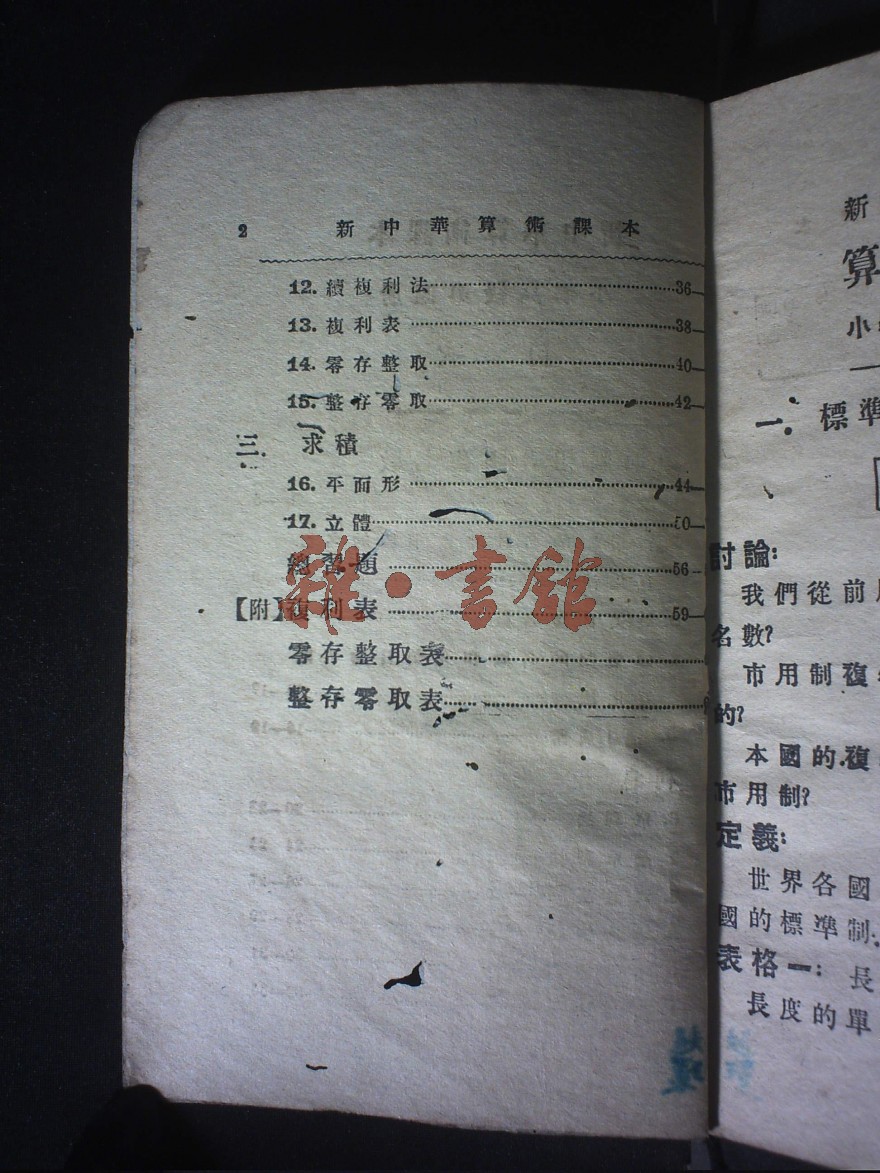 2 新中華算術課本
12. 續複利法 36
13. 複利表 38
14. 零存整取 40
15. 整存零取 42
三. 求積
16. 平面形 44
17. 立體 50
總習題 56
【附】複利表 59
零存整取表
整存零取表
雜·書館
新
算
小
一. 標準
討論:
我們從前
名數?
市用制複
的?
本國的複
市用制?
定義:
世界各國
國的標準制
表格一: 長
長度的單